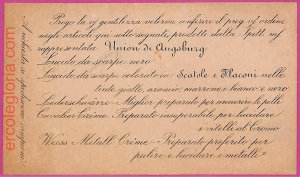 Prego la sj gentilezza volermi conferire il preg vj ordine
negli articoli qui sottosegnati prodotti dalla Spett. mj
rappresentata Union di Augsburg
Lucido da scarpe nero
Lucido da scarpe colorato in Scatole e Flaconi nelle
tinte gialle, arancio, marrone e bianco e nero
Lederschwärze - Miglior preparato per annerire le pelli
Cavalier Crème - Preparato insuperabile per lucidare
i vitelli al Cromo
Weiss Metall Crème - Preparato preferito per
pulire e lucidare i metalli
ercolegloria.com